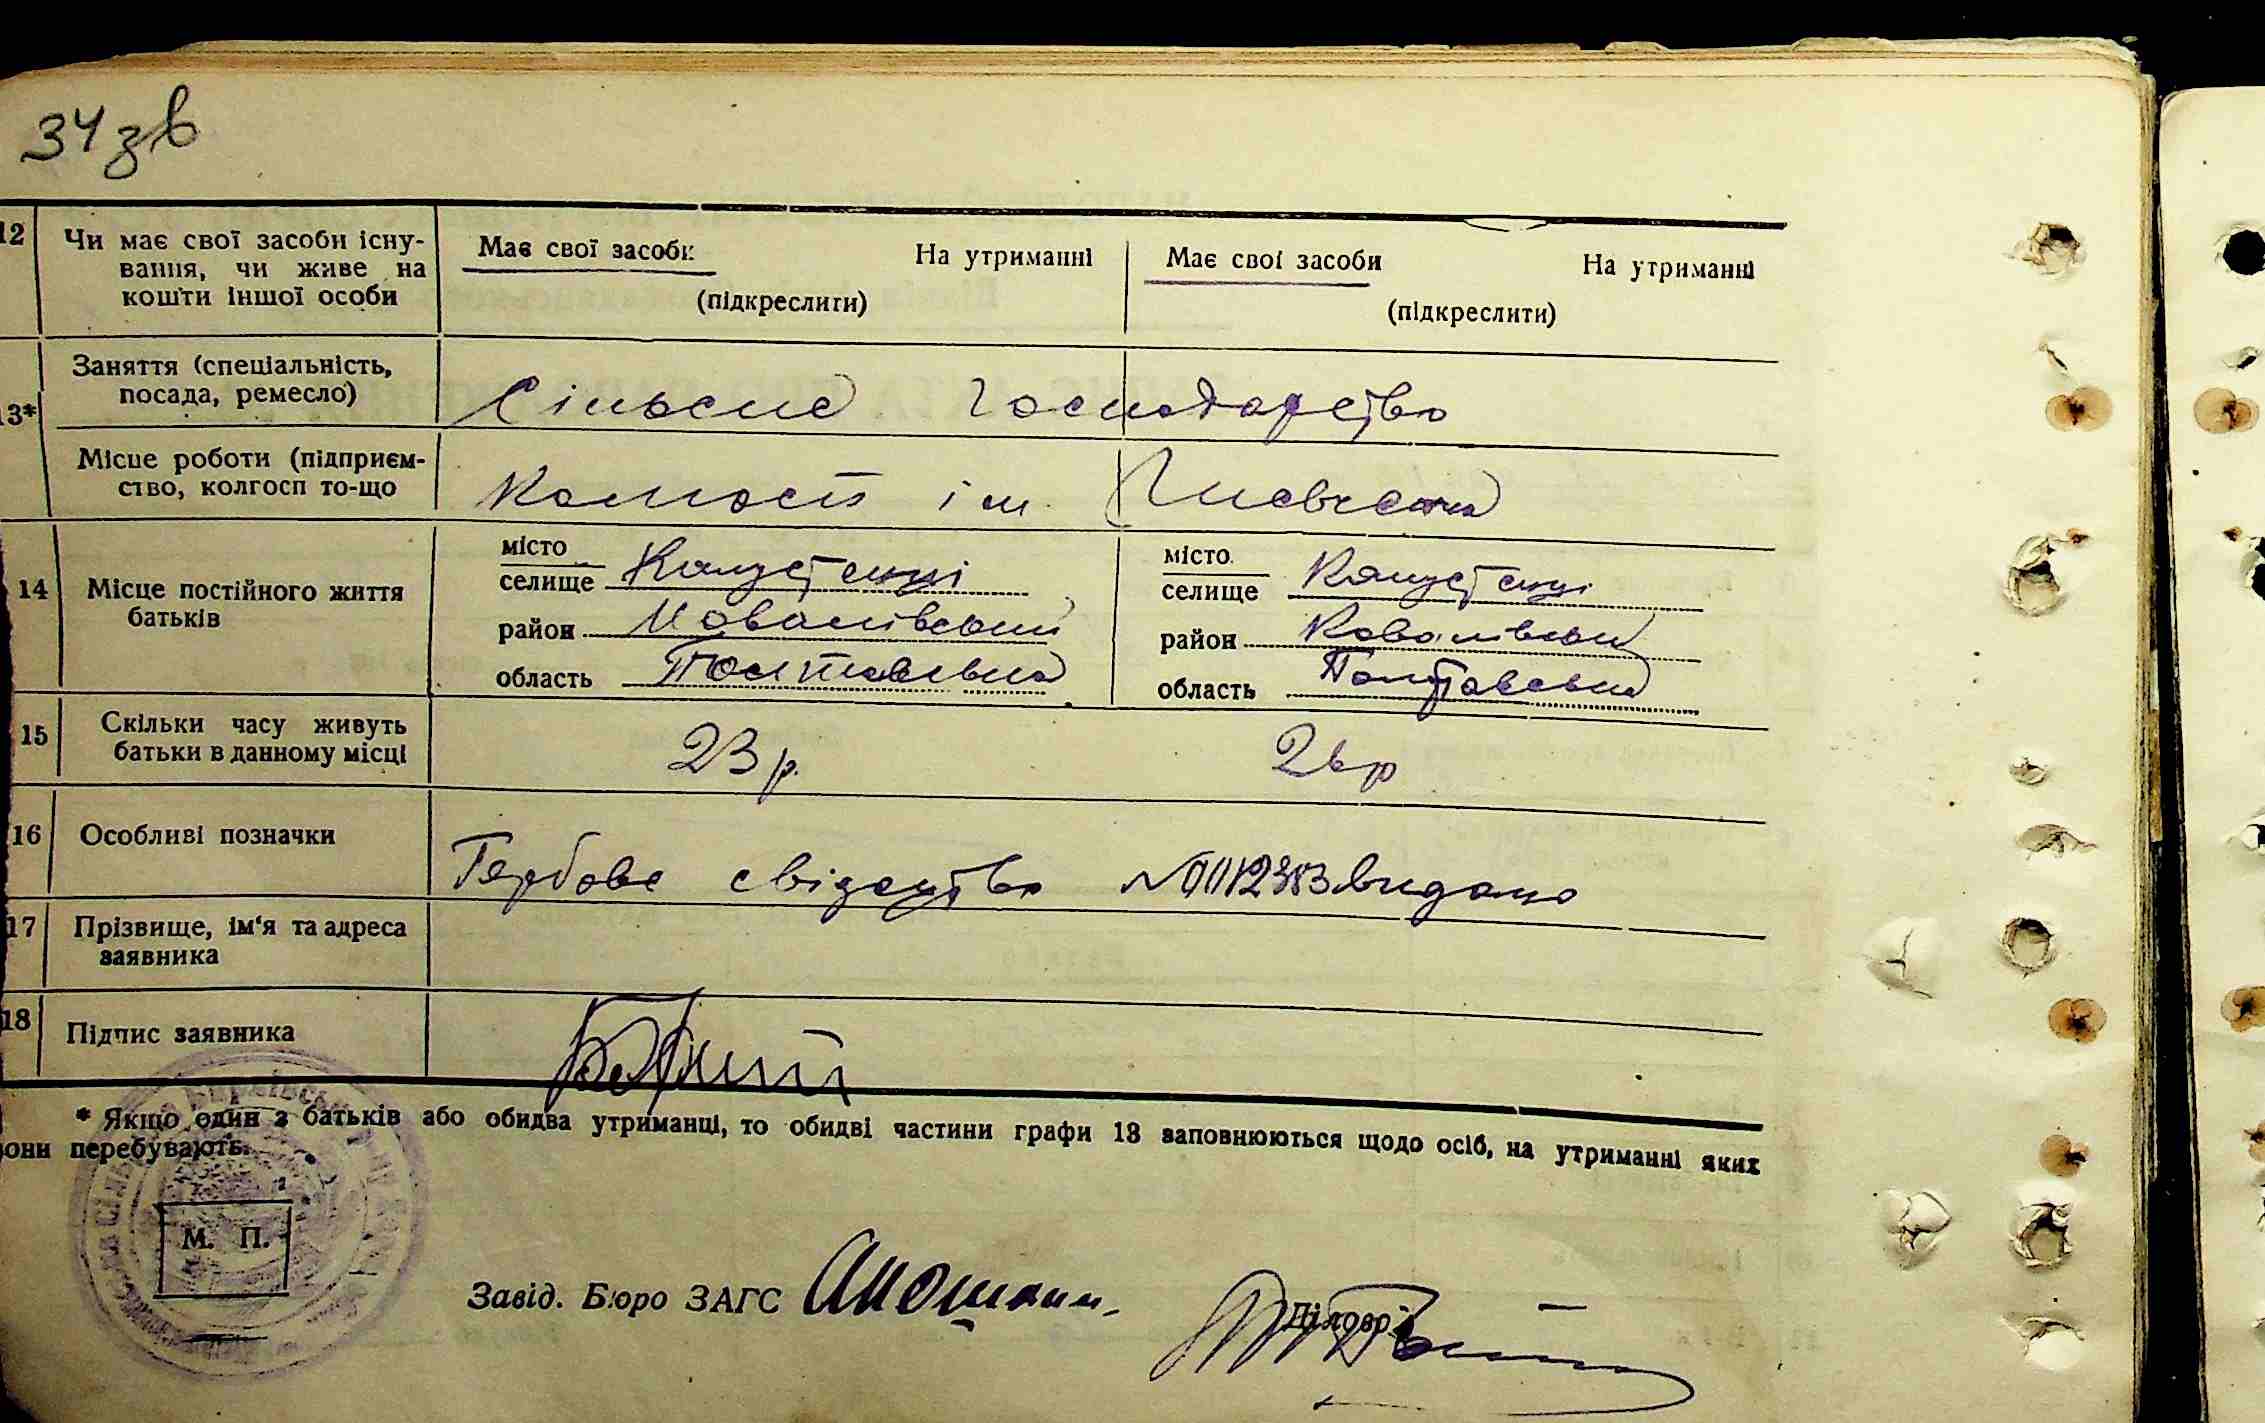 34 зв
12 Чи має свої засоби існу- Має свої засоби На утриманні Має свої засоби На утриманні
вання, чи живе на
кошти іншої особи (підкреслити) (підкреслити)
13* Заняття (спеціальність,
посада, ремесло) Сільське господарство
Місце роботи (підприєм-
ство, колгосп то-що Колгосп ім. Шевченка
14 Місце постійного життя
батьків
місто
селище Капустенці
район Ковалівський
область Полтавська
місто
селище Капустенці
район Ковалівський
область Полтавська
15 Скільки часу живуть
батьки в данному місці 23 р. 26 р
16 Особливі позначки
Гербове свідоцтво № видано
17 Прізвище, ім'я та адреса
заявника
18 Підпис заявника
* Якщо один з батьків або обидва утриманці, то обидві частини графи 13 заповнюються щодо осіб, на утриманні яких
вони перебувають.
М. П.
Завід. Бюро ЗАГС
Діловод